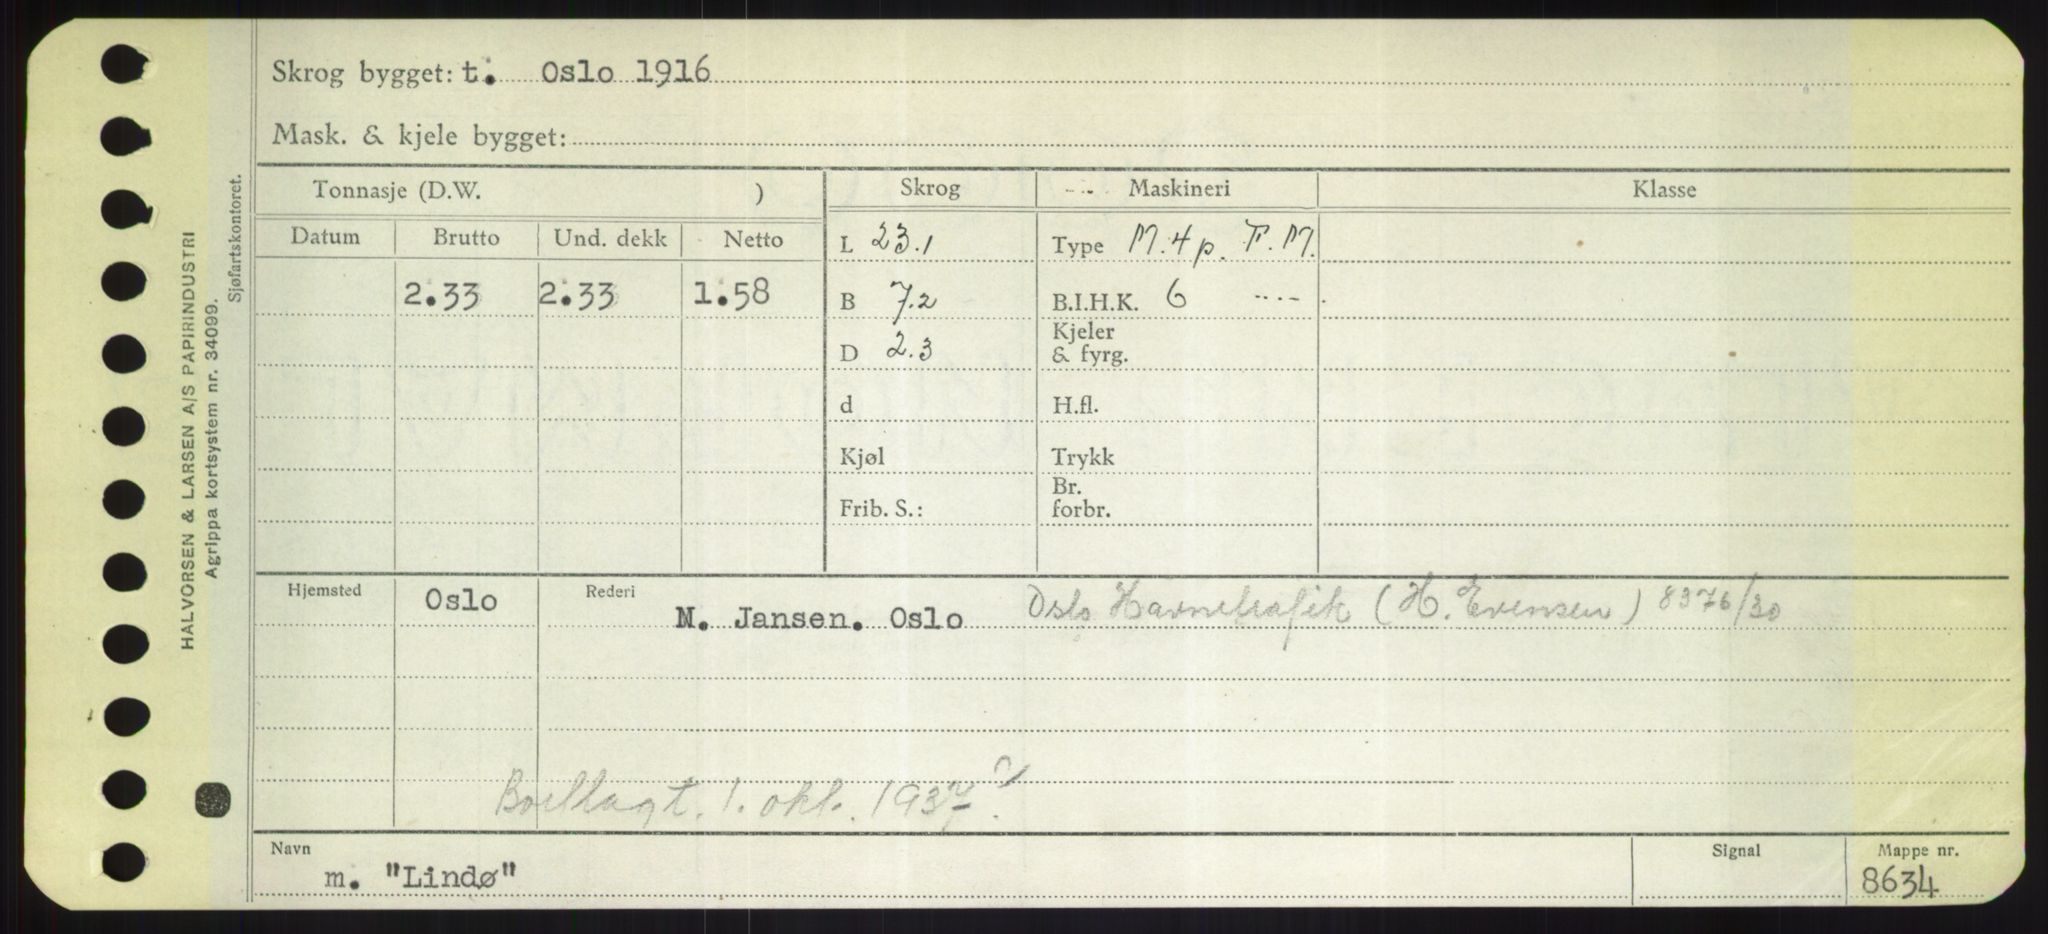 Skrog bygget: t. Oslo 1916
Mask. & kjele bygget:
Tonnasje (D.W. )
Skrog
Maskineri
Klasse
Datum
Brutto
Und. dekk
Netto
2.33
2.33
1.58
L 23.1
B 7.2
D 2.3
d
Kjøl
Frib. S.:
Type M. 4 p. T. M.
B.I.H.K. 6
Kjeler
& fyrg.
H.fl.
Trykk
Br.
forbr.
Hjemsted
Oslo
Rederi
M. Jansen. Oslo Oslo Havnetrafik (H. Evensen) 8376/30
1. okt. 1937 ?
Navn
m. "Lindø"
Signal
Mappe nr.
8634
HALVORSEN & LARSEN A/S PAPIRINDUSTRI
Agrippa kortsystem nr. 34099.
Sjøfartskontoret.